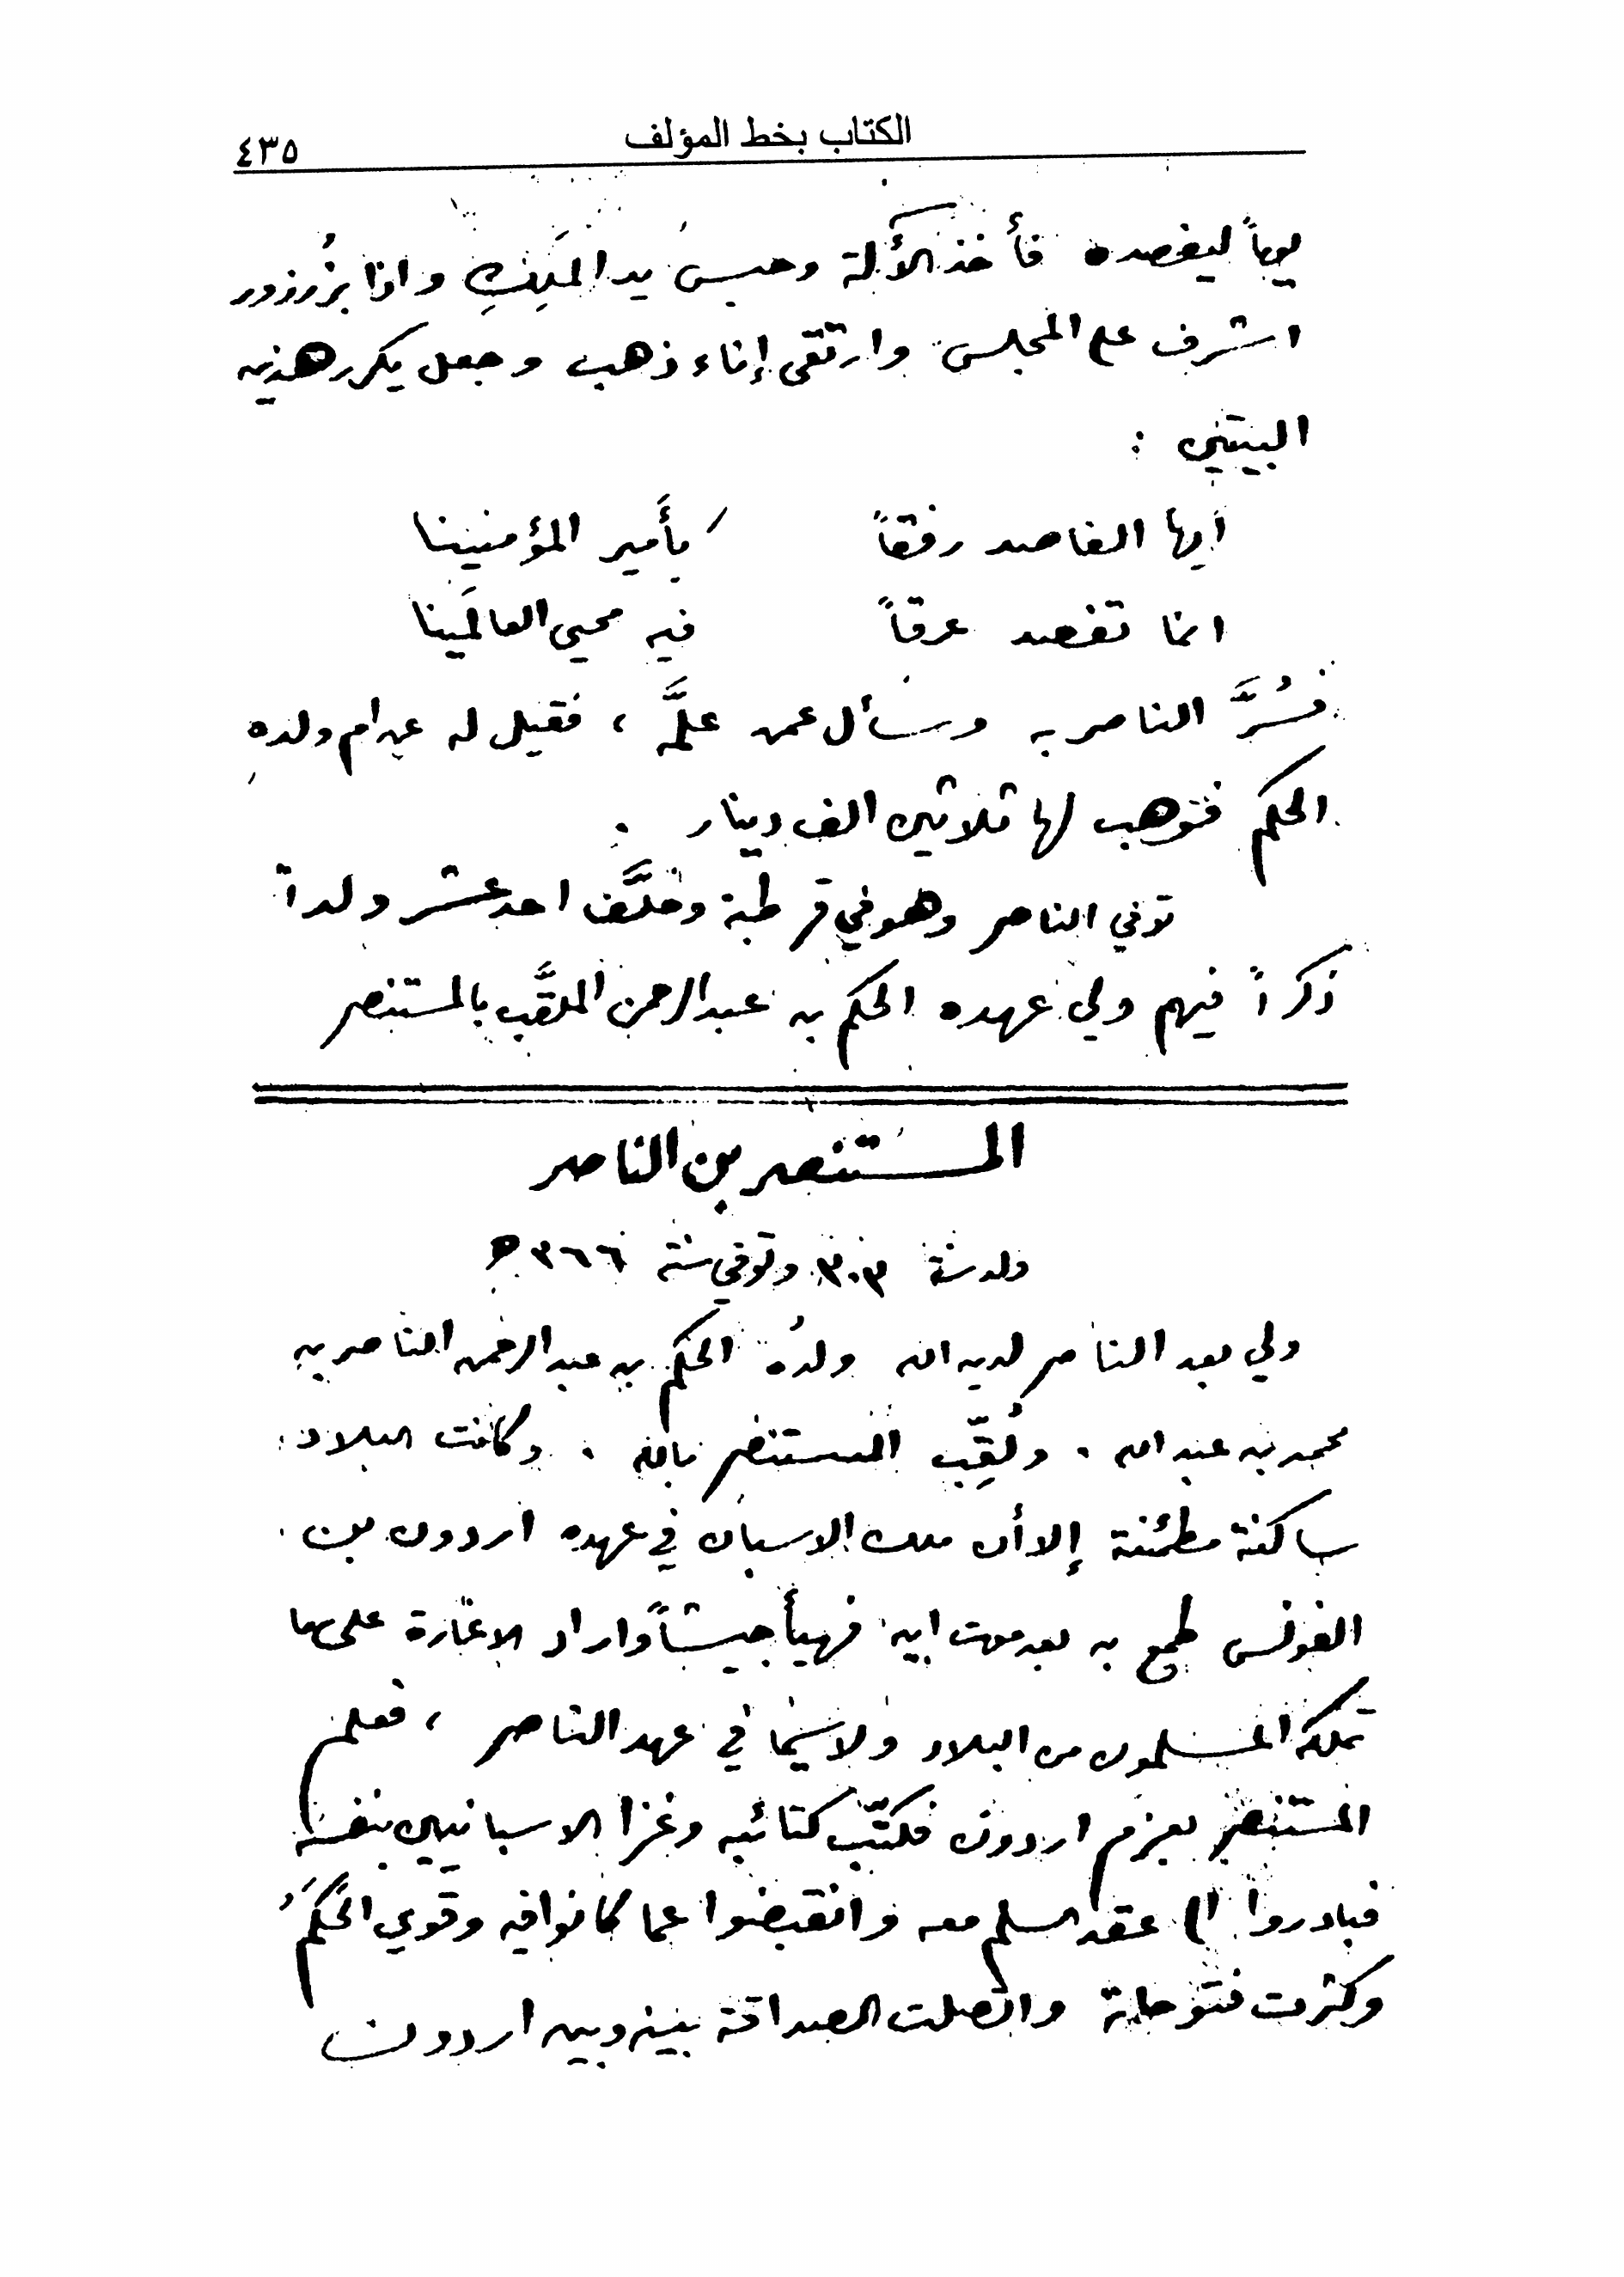 الكتاب بخط المؤلف
٤٣٥
يوماً ليفصده فأخذ الآلة وحبس يد المَلِكِ واذا بزُرزور
اشرف على المجلس وارتقى إناء ذهب وجعل يكرر هذين
البيتين :
ايها الفاصد رفقاً بأَمير المؤمنينا
انما تفصد عرقاً فيه محيي العالَمينا
فسُرَّ الناصر به وسأل عمن علَّمه ، فقيل له عن ام ولده
الحكم فوهب لها ثلاثين الف دينار .
توفي الناصر وهو في قرطبة وخلَّف احد عشر ولداً
ذكراً فيهم ولي عهده الحكم بن عبد الرحمن الملقَّب بالمستنصر
المستنصر بن الناصر
ولد سنة ٣٠٣ وتوفي سنة ٣٦٦ ه
ولي بعد الناصر لدين الله ولدُه الحكم بن عبد الرحمن الناصر بن
محمد بن عبد الله . ولُقِّب المستنصر بالله . وكانت البلاد
ساكنة مطمئنة إلا أن ملك الاسبان في عهده اردون بن
الفونس طمع به بعد موت ابيه فهيأ جيشاً واراد الاغارة على ما
تملكه المسلمون من البلاد ولا سيما في عهد الناصر ، فعلم
المستنصر بعزم اردون فكتّب كتائبه وغزا الاسبانيين بنفسه
فبادروا الى عقد السلم معه وانقبضوا عما كانوا فيه وقوي الحَكَمُ
وكثرت فتوحاته واتصلت الصداقة بينه وبين اردون